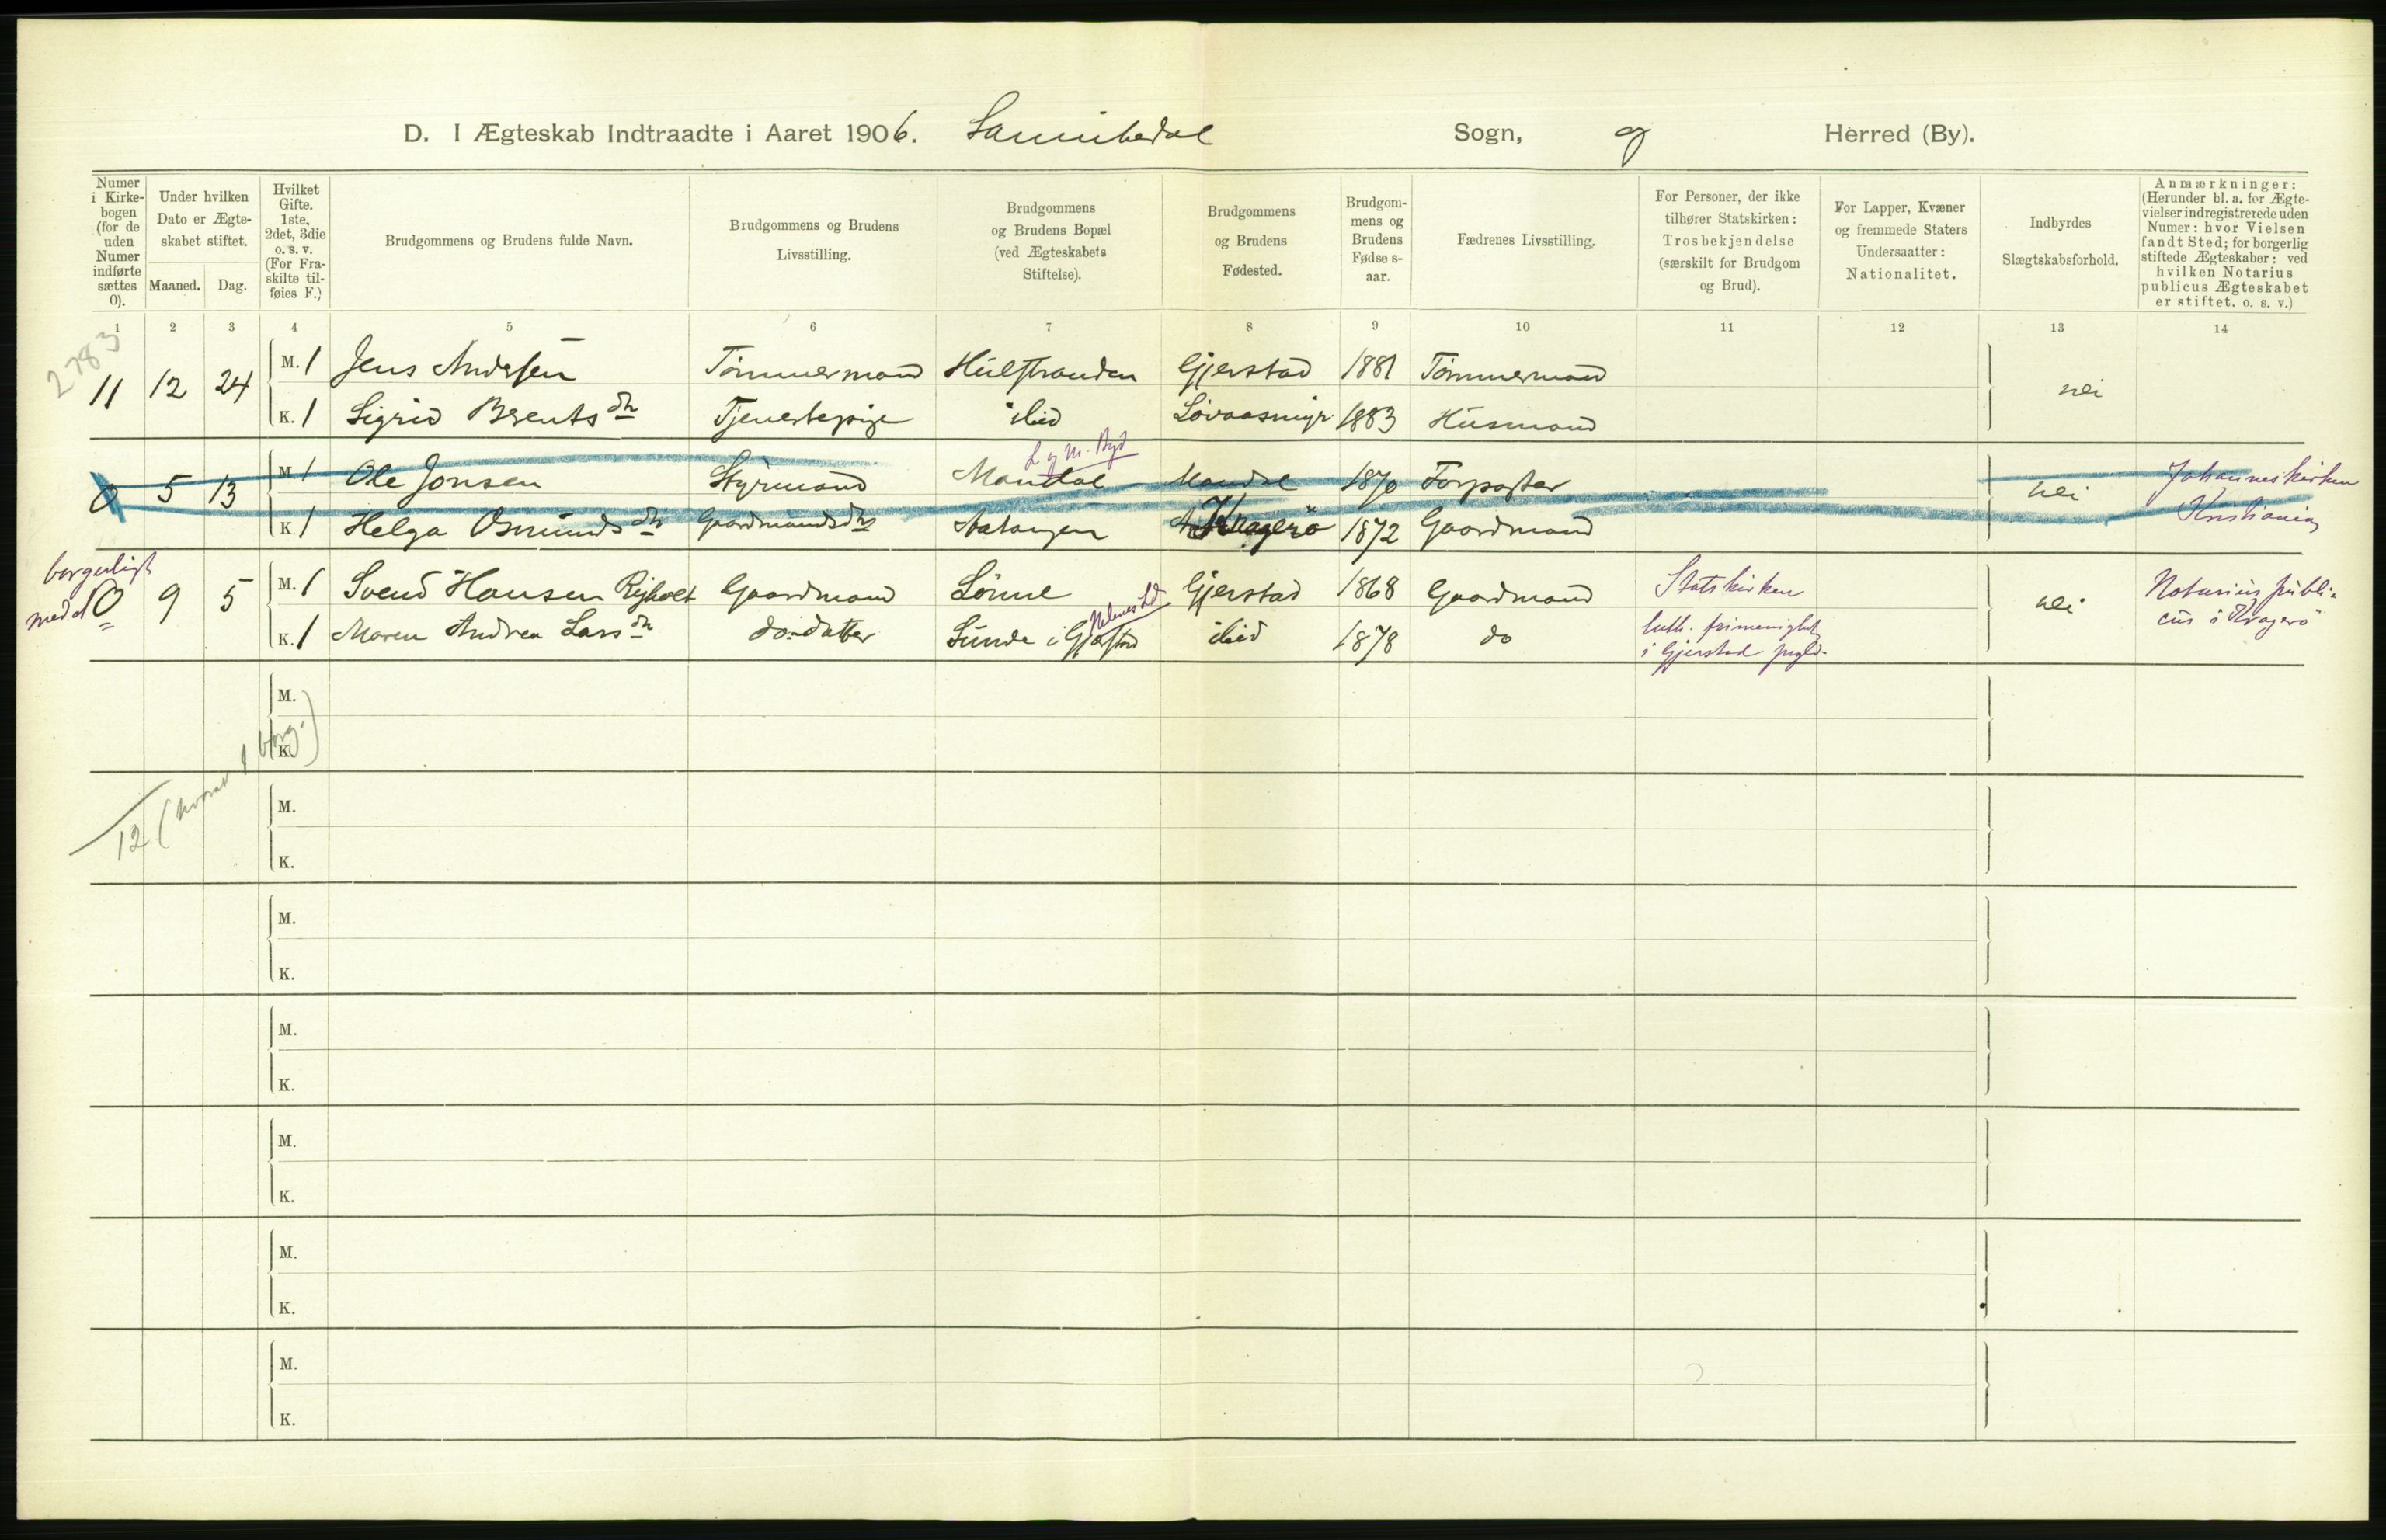 D. I Ægteskab Indtraadte i Aaret 1906. Sannikedal Sogn, og Herred (By).
Numer i Kirkebogen (for de uden Numer indførte sættes 0).
Under hvilken Dato er Ægteskabet stiftet.
Maaned. Dag.
Hvilket Gifte. 1ste, 2det, 3die o. s. v. (For Fraskilte tilføies F.)
Brudgommens og Brudens fulde Navn.
Brudgommens og Brudens Livsstilling.
Brudgommens og Brudens Bopæl (ved Ægteskabets Stiftelse).
Brudgommens og Brudens Fødested.
Brudgommens og Brudens Fødselsaar.
Fædrenes Livsstilling.
For Personer, der ikke tilhører Statskirken: Trosbekjendelse (særskilt for Brudgom og Brud).
For Lapper, Kvæner og fremmede Staters Undersaatter: Nationalitet.
Indbyrdes Slægtskabsforhold.
Anmærkninger: (Herunder bl. a. for Ægtevielser indregistrerede uden Numer: hvor Vielsen fandt Sted; for borgerlig stiftede Ægteskaber: ved hvilken Notarius publicus Ægteskabet er stiftet. o. s. v.)
1 2 3 4 5 6 7 8 9 10 11 12 13 14
2783
11 12 24 M. 1 Jens Andersen Tömmermand Gjerstad 1881 Tömmermand nei
K. 1 Sigrid Berents dtr Tjenestepige ibid Lövaasmyr 1883 Husmand
0 5 13 M. 1 Ole Jonsen Styrmand Mandal Mandal 1870 nei Johanneskirken
K. 1 Helga Osmunds dtr Gaardmandsdtr Kragerö 1872 Gaardmand Kristiania
borgerligt
0 9 5 M. 1 Svend Hansen Gaardmand Lönne Gjerstad 1868 Gaardmand Statskirken nei Notarius publi-
K. 1 Maren Andrea Lars dtr do-datter Sunde i Gjerstad ibid 1878 do luth. frimenighed cus i Kragerö
i Gjerstad prgld.
M.
K.
12 (hvorav 1 borg.)
M.
K.
M.
K.
M.
K.
M.
K.
M.
K.
M.
K.